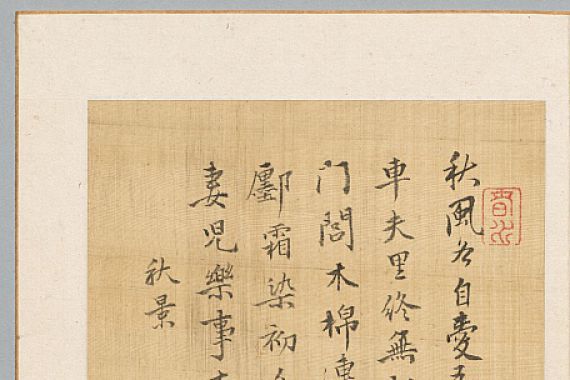 秋風各自愛
車夫里終無
门閭木棉
鄽霜染初
妻児樂事
秋景